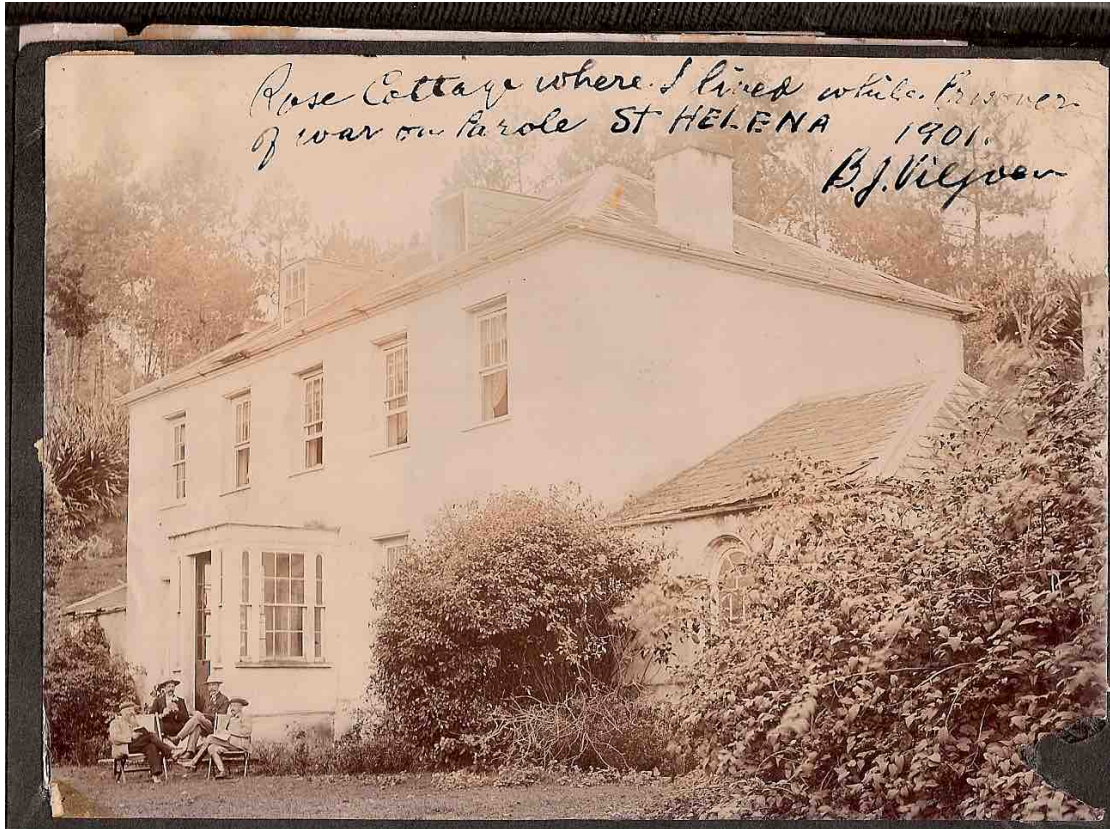 Rose Cottage where I lived while Prisoner
of war on Parole ST HELENA 1901.
B.J. Viljoen